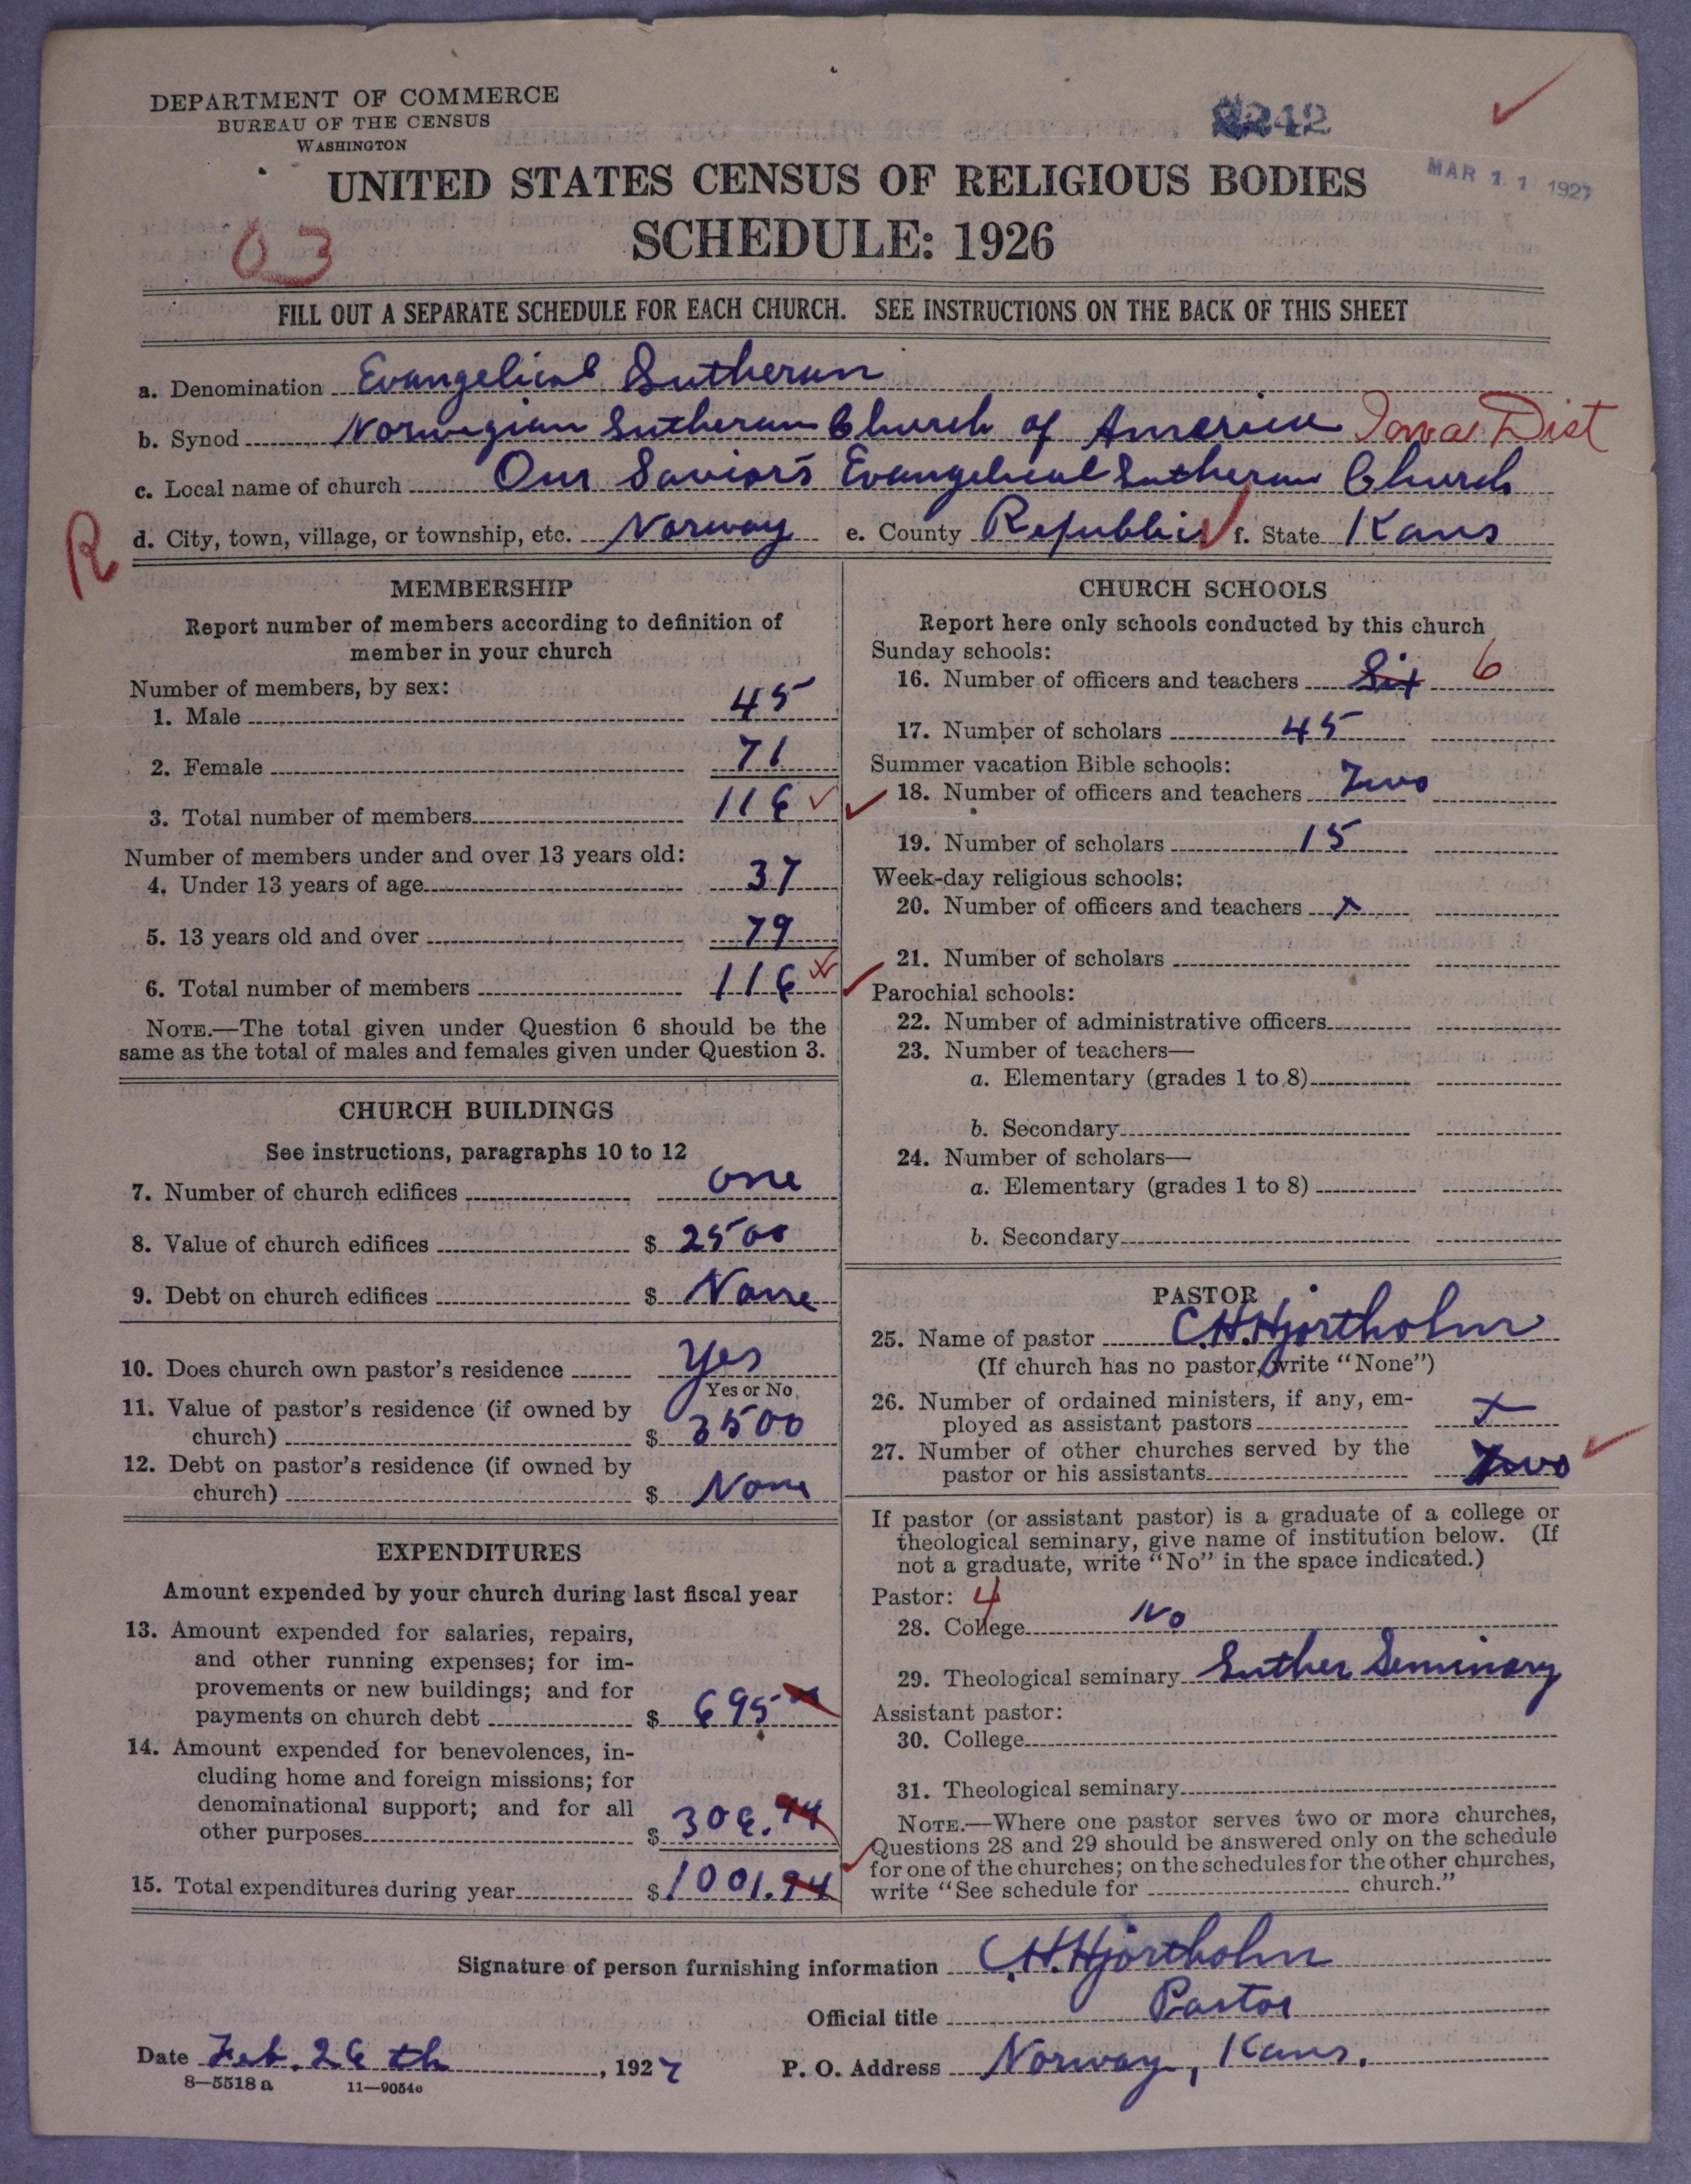 DEPARTMENT OF COMMERCE
BUREAU OF THE CENSUS
WASHINGTON
242
MAR 11 1927
UNITED STATES CENSUS OF RELIGIOUS BODIES
SCHEDULE: 1926
03
FILL OUT A SEPARATE SCHEDULE FOR EACH CHURCH. SEE INSTRUCTIONS ON THE BACK OF THIS SHEET
a. Denomination Evangelical Lutheran
b. Synod Norwegian Lutheran Church of America Iowa Dist
c. Local name of church Our Savior's Evangelical Lutheran Church
R d. City, town, village, or township, etc. Norway e. County Republic f. State Kans
MEMBERSHIP
Report number of members according to definition of
member in your church
Number of members, by sex:
1. Male 45
2. Female 71
3. Total number of members 116
Number of members under and over 13 years old:
4. Under 13 years of age 37
5. 13 years old and over 79
6. Total number of members 116
NOTE.—The total given under Question 6 should be the
same as the total of males and females given under Question 3.
CHURCH BUILDINGS
See instructions, paragraphs 10 to 12
7. Number of church edifices one
8. Value of church edifices $ 2500
9. Debt on church edifices $ None
10. Does church own pastor's residence Yes
Yes or No
11. Value of pastor's residence (if owned by
church) $ 3500
12. Debt on pastor's residence (if owned by
church) $ None
EXPENDITURES
Amount expended by your church during last fiscal year
13. Amount expended for salaries, repairs,
and other running expenses; for im-
provements or new buildings; and for
payments on church debt $ 695
14. Amount expended for benevolences, in-
cluding home and foreign missions; for
denominational support; and for all
other purposes $ 306.94
15. Total expenditures during year $ 1001.94
CHURCH SCHOOLS
Report here only schools conducted by this church
Sunday schools:
16. Number of officers and teachers Six 6
17. Number of scholars 45
Summer vacation Bible schools:
18. Number of officers and teachers Two
19. Number of scholars 15
Week-day religious schools:
20. Number of officers and teachers x
21. Number of scholars
Parochial schools:
22. Number of administrative officers
23. Number of teachers—
a. Elementary (grades 1 to 8)
b. Secondary
24. Number of scholars—
a. Elementary (grades 1 to 8)
b. Secondary
PASTOR
25. Name of pastor C.H.Hjortholm
(If church has no pastor, write "None")
26. Number of ordained ministers, if any, em-
ployed as assistant pastors x
27. Number of other churches served by the
pastor or his assistants Two
If pastor (or assistant pastor) is a graduate of a college or
theological seminary, give name of institution below. (If
not a graduate, write "No" in the space indicated.)
Pastor: 4
28. College No
29. Theological seminary Luther Seminary
Assistant pastor:
30. College
31. Theological seminary
NOTE.—Where one pastor serves two or more churches,
Questions 28 and 29 should be answered only on the schedule
for one of the churches; on the schedules for the other churches,
write "See schedule for church."
Signature of person furnishing information C.H.Hjortholm
Official title Pastor
Date Feb. 26 th, 1927 P. O. Address Norway, Kans.
8—5518 a 11—9054a